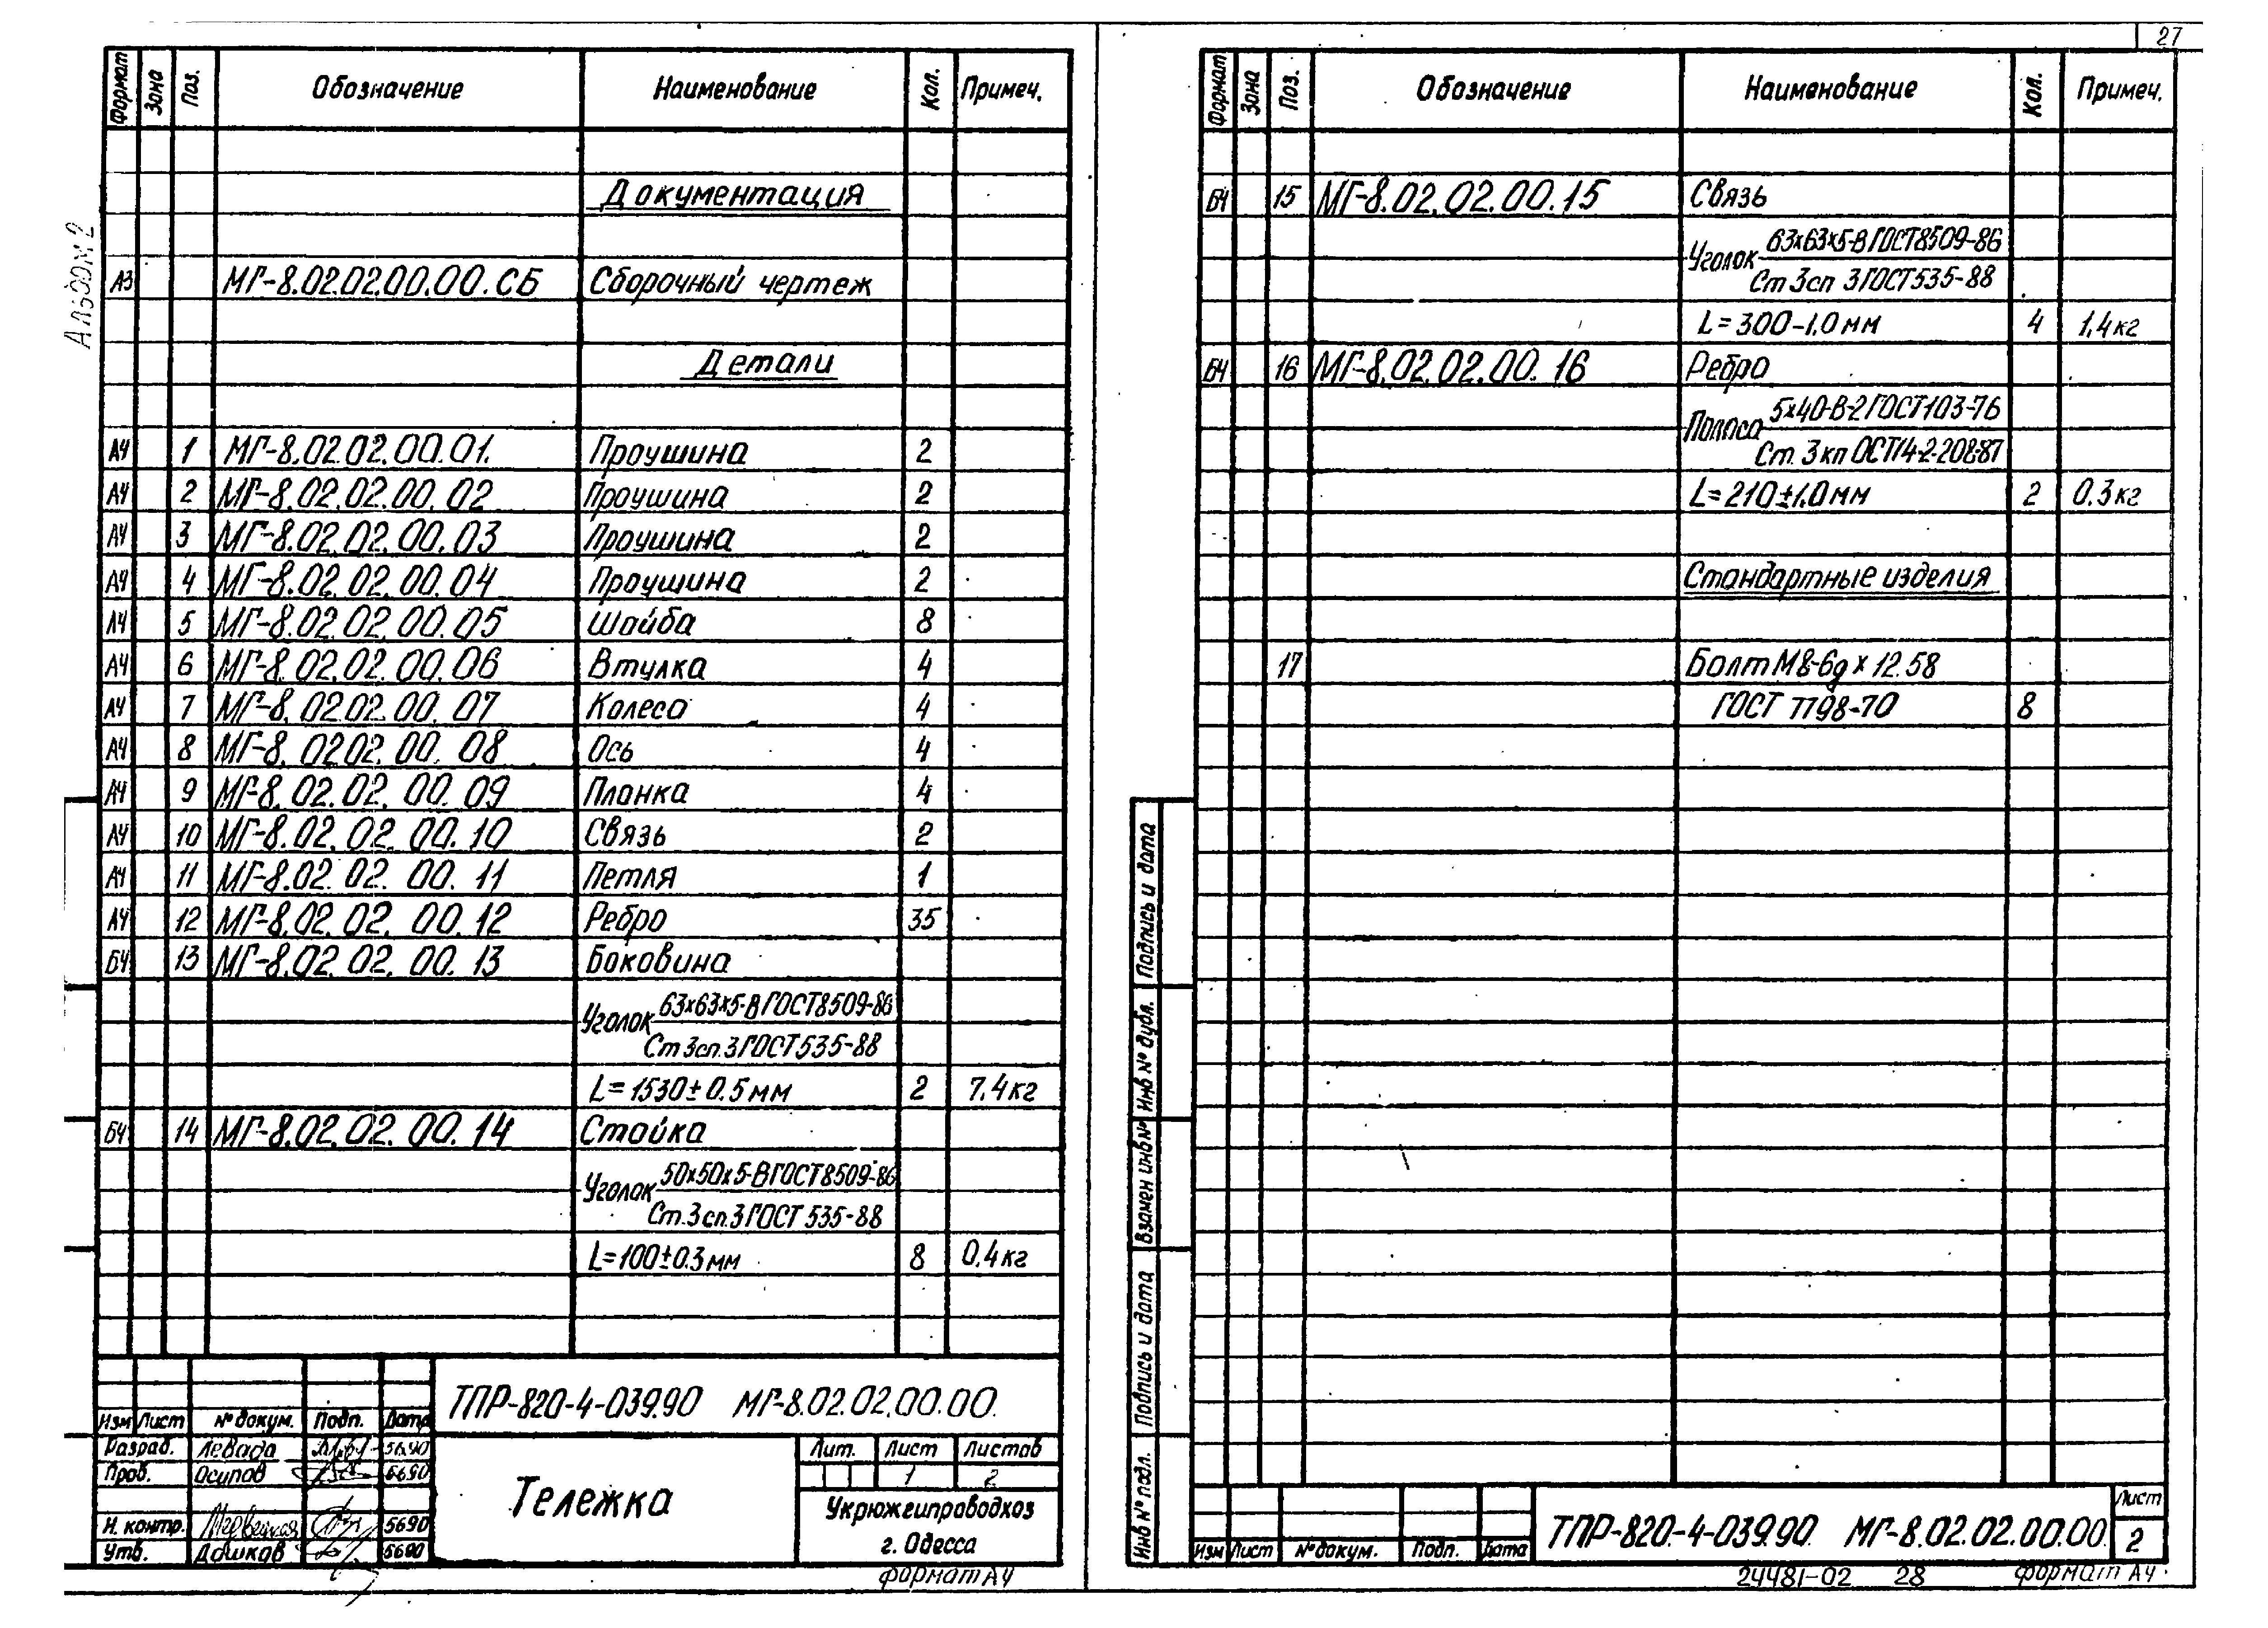 27
Альбом 2
Формат Зона Поз. Обозначение Наименование Кол. Примеч.
Документация
А3 МГ-8.02.02.00.00.СБ Сборочный чертеж
Детали
А4 1 МГ-8.02.02.00.01. Проушина 2
А4 2 МГ-8.02.02.00.02 Проушина 2
А4 3 МГ-8.02.02.00.03 Проушина 2
А4 4 МГ-8.02.02.00.04 Проушина 2
А4 5 МГ-8.02.02.00.05 Шайба 8
А4 6 МГ-8.02.02.00.06 Втулка 4
А4 7 МГ-8.02.02.00.07 Колесо 4
А4 8 МГ-8.02.02.00.08 Ось 4
А4 9 МГ-8.02.02.00.09 Планка 4
А4 10 МГ-8.02.02.00.10 Связь 2
А4 11 МГ-8.02.02.00.11 Петля 1
А4 12 МГ-8.02.02.00.12 Ребро 35
БЧ 13 МГ-8.02.02.00.13 Боковина
Уголок 63х63х5-В ГОСТ8509-86
Ст3сп.3 ГОСТ535-88
L=1530±0.5мм 2 7.4кг
БЧ 14 МГ-8.02.02.00.14 Стойка
Уголок 50х50х5-В ГОСТ8509-86
Ст.3сп.3 ГОСТ 535-88
L=100±0.3мм 8 0.4кг
ТПР-820-4-039.90 МГ-8.02.02.00.00.
Изм Лист № докум. Подп. Дата
Разраб. Левада 5690
Пров. Осипов 5690
Н. контр. 5690
Утв. Дашков 5690
Тележка
Лит. Лист Листов
1 2
Укрюжгипроводхоз
г. Одесса
формат А4
Формат Зона Поз. Обозначение Наименование Кол. Примеч.
БЧ 15 МГ-8.02.02.00.15 Связь
Уголок 63х63х5-В ГОСТ8509-86
Ст3сп 3ГОСТ535-88
L=300-1.0мм 4 1.4кг
БЧ 16 МГ-8.02.02.00.16 Ребро
Полоса 5х40-В-2 ГОСТ103-76
Ст.3кп ОСТ14-2-208-87
L=210±1.0мм 2 0.3кг
Стандартные изделия
17 Болт М8-6gх12.58
ГОСТ 7798-70 8
Подпись и дата
Инв № дубл.
Взамен инв №
Подпись и дата
Инв № подл.
Изм Лист № докум. Подп. Дата
ТПР-820-4-039.90 МГ-8.02.02.00.00.
Лист
2
24481-02 28 формат А4